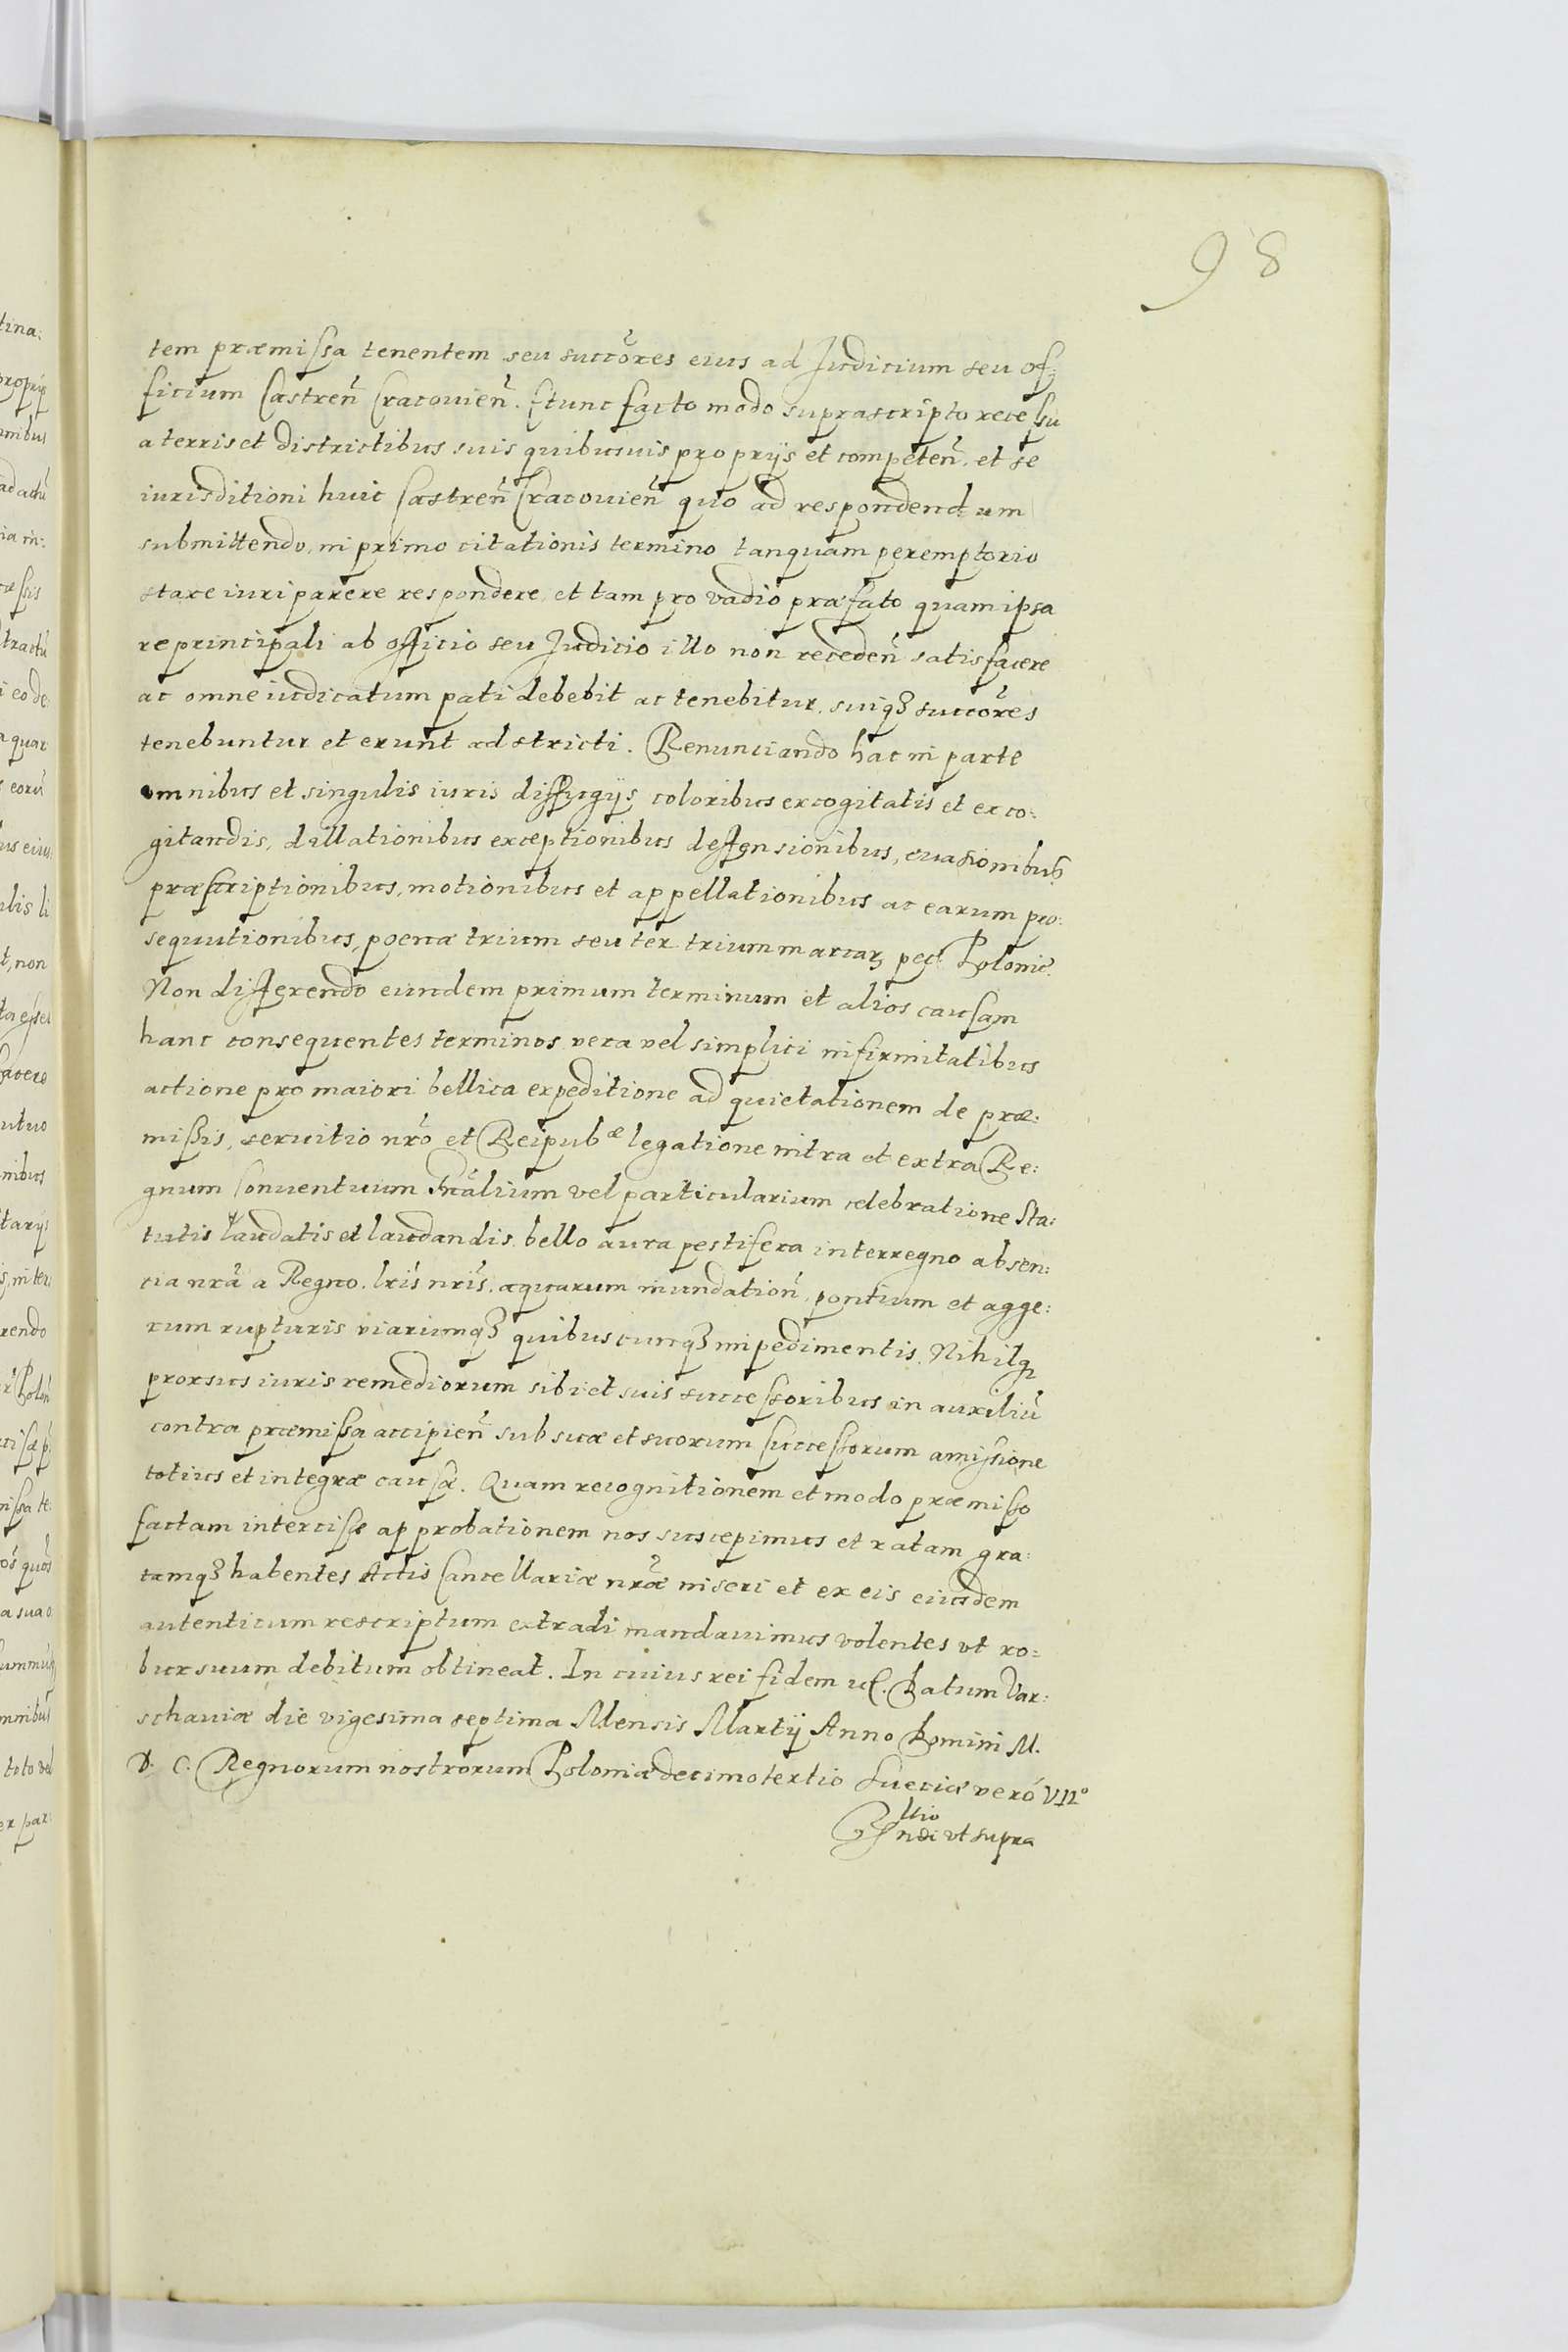 98
tem præmissa tenentem seu succõres eius ad Judicium seu of:
ficium Castreñ Cracouieñ. Et tunc facto modo suprascripto recessu
a terris et districtibus suis quibusuis proprijs et competeñ. et se
iurisditioni huic Castreñ Cracouieñ quo ad respondendum
submittendo, in primo citationis termino tanquam peremptorio
stare iuri parere respondere, et tam pro vadio præfato quam ipsa
re principali ab officio seu Judicio illo non recedeñ satisfacere
ac omne iudicatum pati debebit ac tenebitur, suiq3 succõres
tenebuntur et erunt adstricti. Renunciando hac in parte
omnibus et singulis iuris diffugijs coloribus excogitatis et exco:
gitandis, dillationibus exceptionibus deffensionibus, euasionibus
præscriptionibus, motionibus et appellationibus ac earum pro:
sequutionibus, poenæ trium seu ter trium marcar, pec Polonic.
Non differendo eundem primum terminum et alios causam
hanc consequentes terminos vera vel simplici infirmitatibus
actione pro maiori bellica expeditione ad quietationem de præ:
missis, seruitio nrõ et Reipubæ legatione intra et extra Re:
gnum Conuentuum Gñalium vel particularium celebratione Sta:
tutis laudatis et laudandis bello aura pestifera interregno absen:
cia nrã a Regno. lris nris. aquarum inundationũ, pontium et agge:
rum rupturis viarumq3 quibuscunq3 impedimentis. Nihilq3
prorsus iuris remediorum sibi et suis successoribus in auxiliũ
contra præmissa accipieñ sub suæ et suorum successorum amissione
totius et integræ causæ. Quam recognitionem et modo præmisso
factam intercissæ approbationem nos suscepimus et ratam gra:
tamq3 habentes Actis Cancellariæ nræ inseri et ex eis eiusdem
autenticum rescriptum extradi mandauimus volentes vt ro:
bur suum debitum obtineat. In cuius rei fidem Datum Var:
schauiæ die vigesima septima Mensis Martij Anno Domini M.
D. C. Regnorum nostrorum Poloniæ decimotertio Sueciæ vero VII°
vt supra